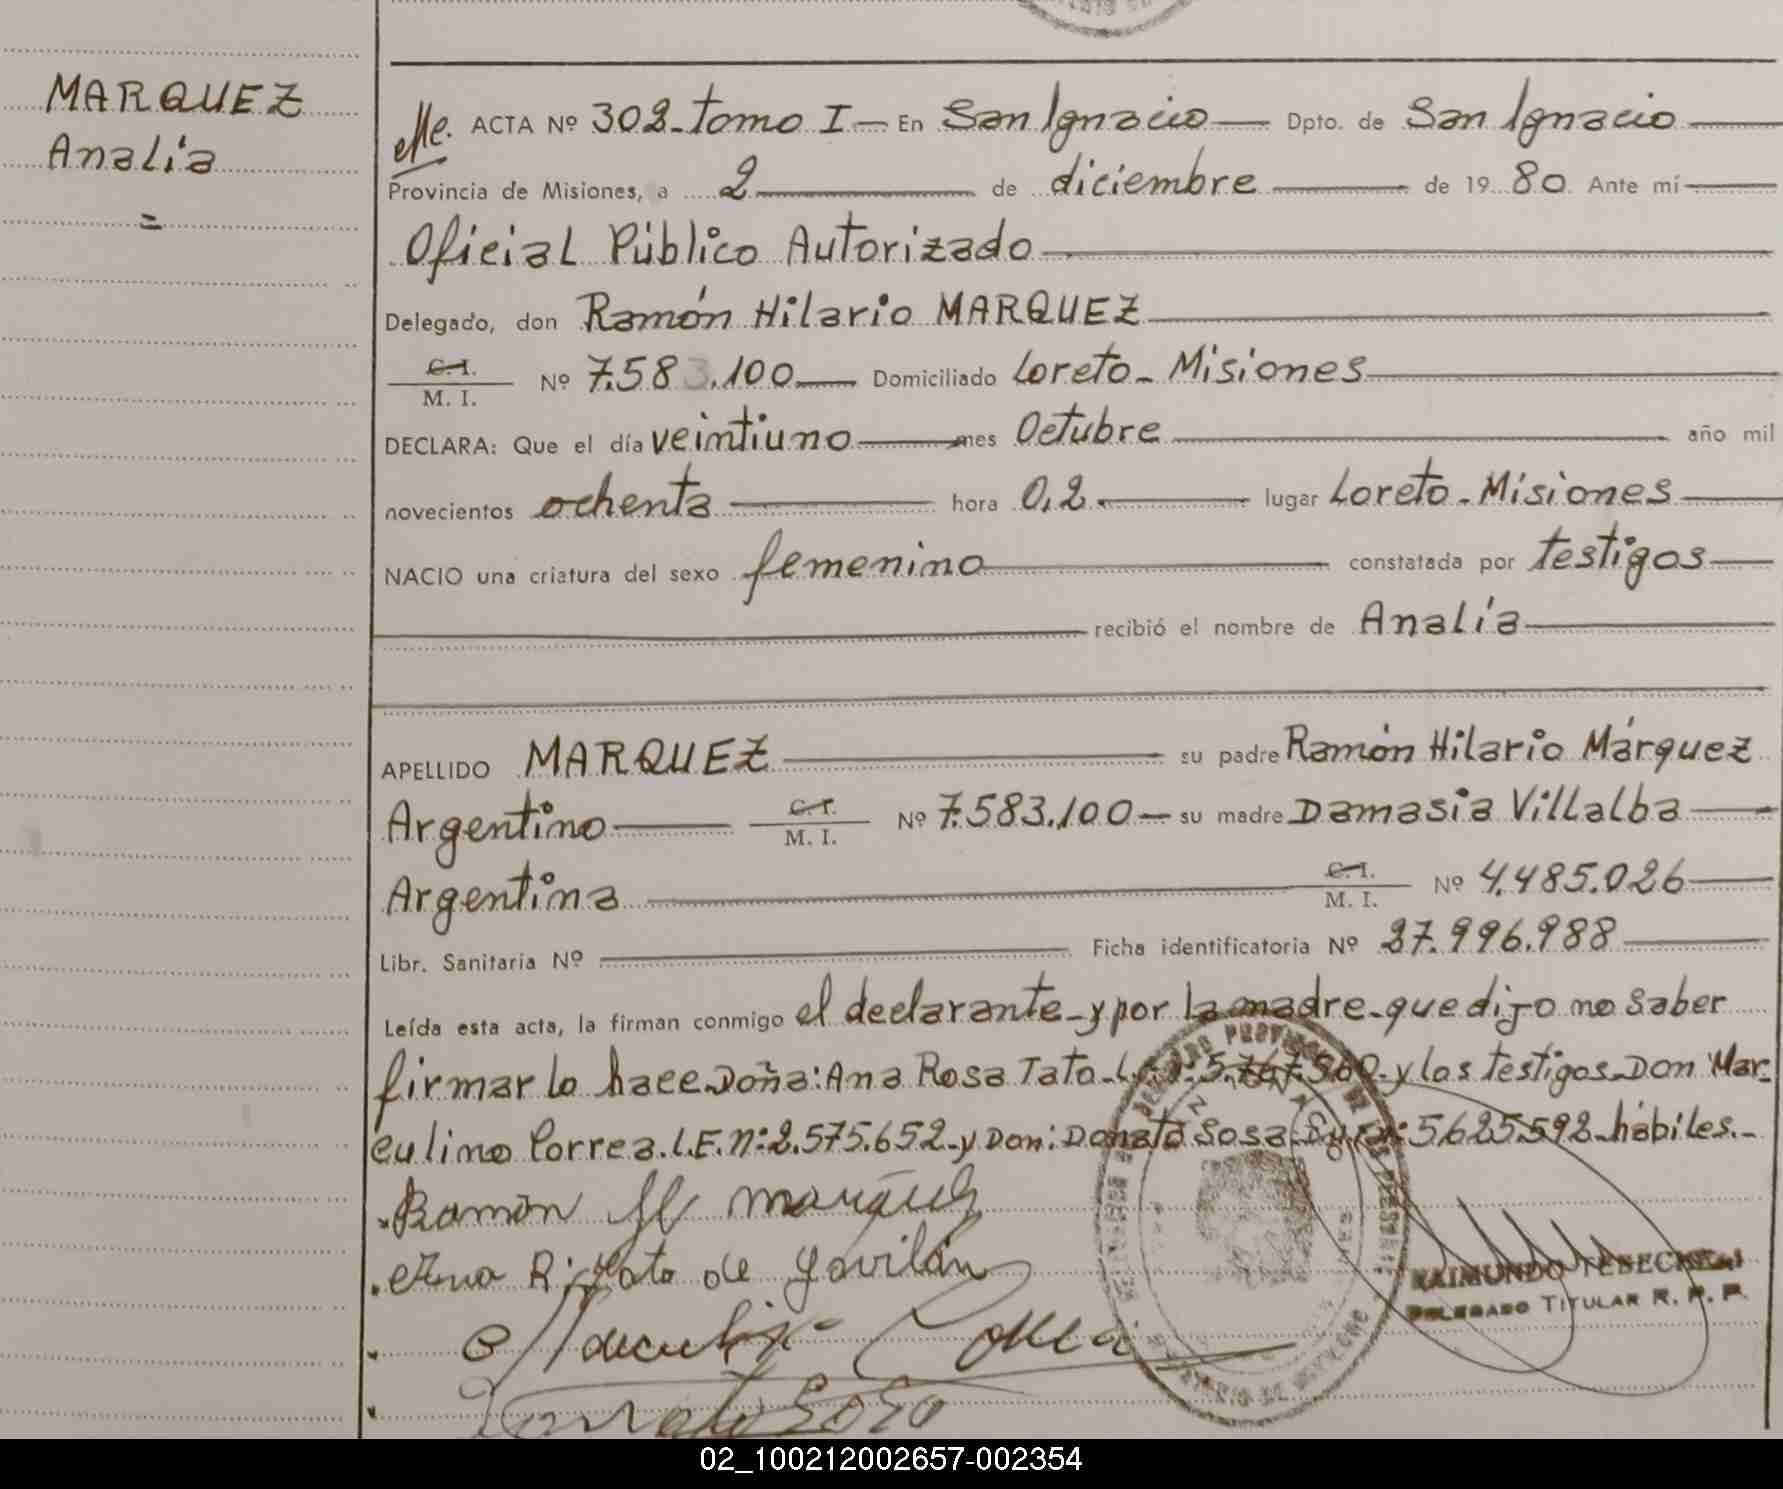 MARQUEZ
Analía
=
ACTA Nº 302 - tomo I — En San Ignacio — Dpto. de San Ignacio
Provincia de Misiones, a 2 de diciembre de 1980 Ante mí
Oficial Público Autorizado
Delegado, don Ramón Hilario MARQUEZ
C. I.
M. I. Nº 7.583.100 Domiciliado Loreto - Misiones
DECLARA: Que el día veintiuno mes Octubre año mil
novecientos ochenta hora 0,2 lugar Loreto - Misiones
NACIO una criatura del sexo femenino constatada por testigos
recibió el nombre de Analía
APELLIDO MARQUEZ su padre Ramón Hilario Márquez
Argentino C. I. M. I. Nº 7.583.100 — su madre Damasia Villalba
Argentina C. I. M. I. Nº 4.485.026
Libr. Sanitaria Nº Ficha identificatoria Nº 27.996.988
Leída esta acta, la firman conmigo el declarante - y por la madre - que dijo no saber
firmar lo hace Doña: Ana Rosa Tato - 5.767.560 - y los testigos Don Mar-
culino Correa. L.E. Nº: 2.575.652 - y Don: Donato Sosa 5.625.592 - hábiles. -
Ramón H Marquez
Ana R. Tato de Gavilán
Marculino Correa
Donato Sosa
DELEGADO TITULAR R. P. P.
02_100212002657-002354